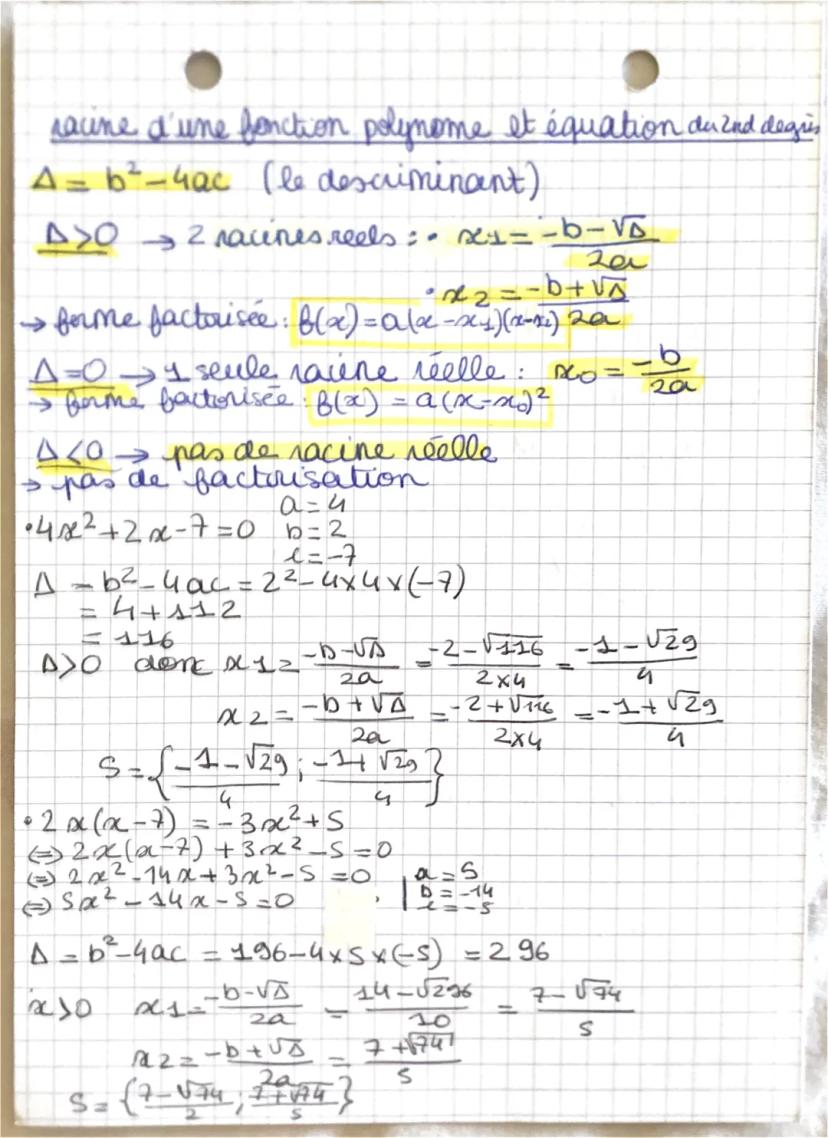 racine d'une fonction polynome et équation du 2nd degrés
Δ = b² - 4ac (le descriminant)
Δ>0 → 2 racines reels : • x1 = (-b-√Δ)/2a
• x2 = (-b+√Δ)/2a
→ forme factorisée : f(x) = a(x-x1)(x-x2)
Δ=0 → 1 seule racine réelle : x0 = -b/2a
→ forme factorisée : f(x) = a(x-x0)²
Δ<0 → pas de racine réelle
→ pas de factorisation
• 4x² + 2x - 7 = 0 a = 4 b = 2 c = -7
Δ = b² - 4ac = 2² - 4×4×(-7)
= 4 + 112
= 116
Δ>0 donc x1 = (-b-√Δ)/2a = (-2-√116)/(2×4) = (-1-√29)/4
x2 = (-b+√Δ)/2a = (-2+√116)/(2×4) = (-1+√29)/4
S = {(-1-√29)/4 ; (-1+√29)/4}
• 2x(x-7) = -3x² + 5
⇔ 2x(x-7) + 3x² - 5 = 0
⇔ 2x² - 14x + 3x² - 5 = 0 | a = 5
⇔ 5x² - 14x - 5 = 0 | b = -14 c = -5
Δ = b² - 4ac = 196 - 4×5×(-5) = 296
x>0 x1 = (-b-√Δ)/2a = (14-√296)/10 = (7-√74)/5
x2 = (-b+√Δ)/2a = (7+√74)/5
S = {(7-√74)/2 ; (7+√74)/5}